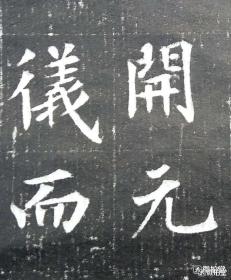 開元
儀而